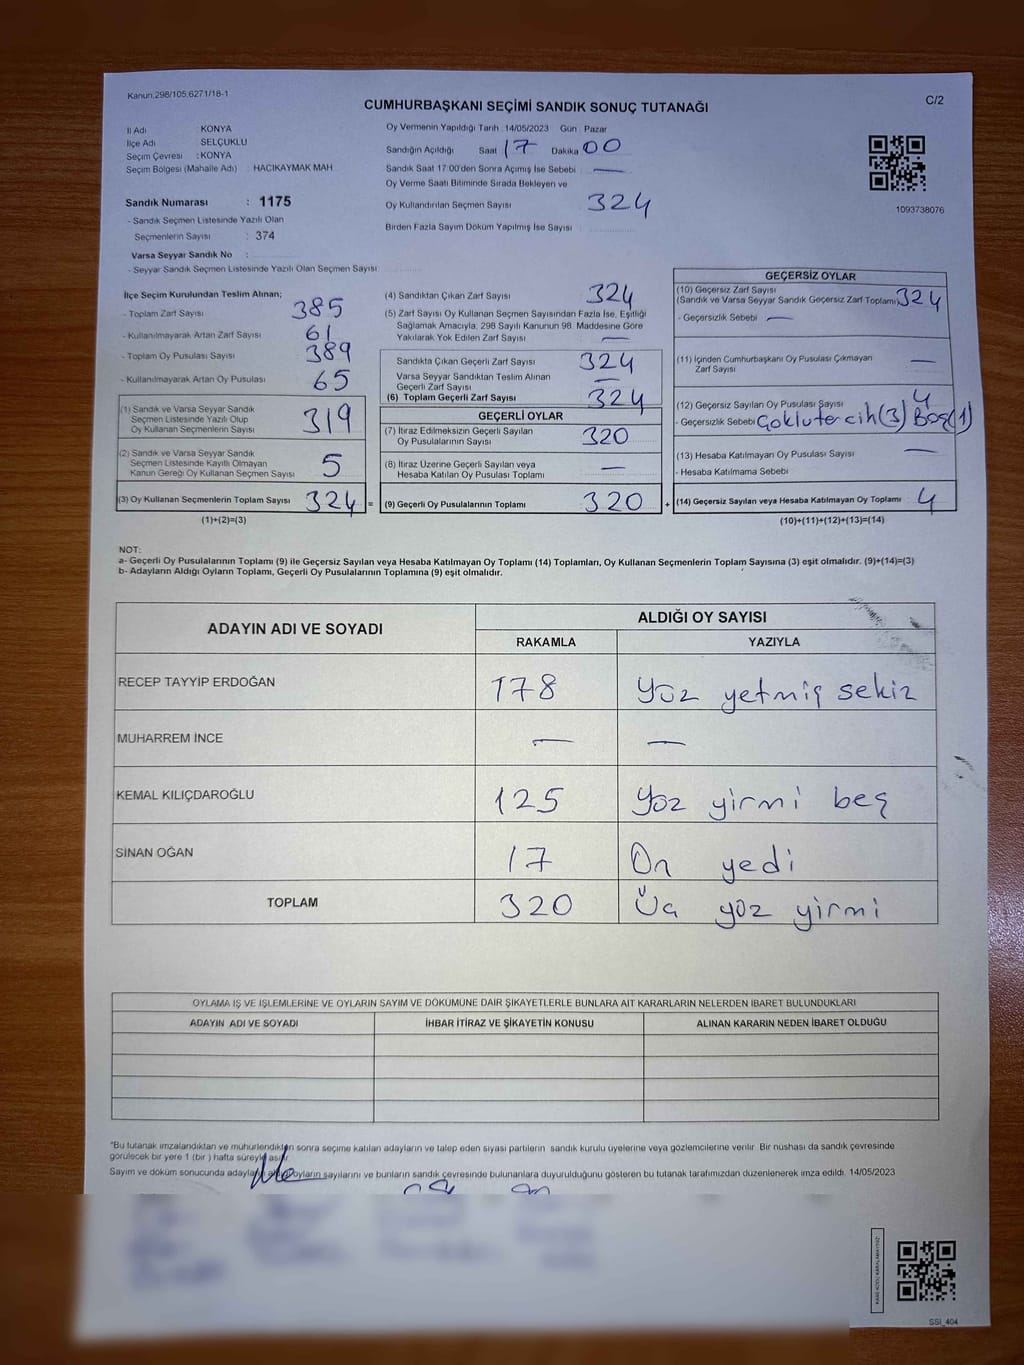 Kanun.298/105,6271/18-1
CUMHURBAŞKANI SEÇİMİ SANDIK SONUÇ TUTANAĞI
C/2
İl Adı KONYA
İlçe Adı SELÇUKLU
Seçim Çevresi : KONYA
Seçim Bölgesi (Mahalle Adı) : HACIKAYMAK MAH
Sandık Numarası : 1175
- Sandık Seçmen Listesinde Yazılı Olan
Seçmenlerin Sayısı : 374
Varsa Seyyar Sandık No :
- Seyyar Sandık Seçmen Listesinde Yazılı Olan Seçmen Sayısı
Oy Vermenin Yapıldığı Tarih 14/05/2023 Gün Pazar
Sandığın Açıldığı Saat 17 Dakika 00
Sandık Saat 17:00'den Sonra Açımış İse Sebebi —
Oy Verme Saati Bitiminde Sırada Bekleyen ve
Oy Kullandırılan Seçmen Sayısı 324
Birden Fazla Sayım Döküm Yapılmış İse Sayısı
1093738076
İlçe Seçim Kurulundan Teslim Alınan;
- Toplam Zarf Sayısı 385
- Kullanılmayarak Artan Zarf Sayısı 61
- Toplam Oy Pusulası Sayısı 389
- Kullanılmayarak Artan Oy Pusulası 65
(1) Sandık ve Varsa Seyyar Sandık
Seçmen Listesinde Yazılı Olup
Oy Kullanan Seçmenlerin Sayısı 319
(2) Sandık ve Varsa Seyyar Sandık
Seçmen Listesinde Kayıtlı Olmayan
Kanun Gereği Oy Kullanan Seçmen Sayısı 5
(3) Oy Kullanan Seçmenlerin Toplam Sayısı 324 =
(1)+(2)=(3)
(4) Sandıktan Çıkan Zarf Sayısı 324
(5) Zarf Sayısı Oy Kullanan Seçmen Sayısından Fazla İse, Eşitliği
Sağlamak Amacıyla, 298 Sayılı Kanunun 98. Maddesine Göre
Yakılarak Yok Edilen Zarf Sayısı —
Sandıkta Çıkan Geçerli Zarf Sayısı 324
Varsa Seyyar Sandıktan Teslim Alınan
Geçerli Zarf Sayısı —
(6) Toplam Geçerli Zarf Sayısı 324
GEÇERLİ OYLAR
(7) İtiraz Edilmeksizin Geçerli Sayılan
Oy Pusulalarının Sayısı 320
(8) İtiraz Üzerine Geçerli Sayılan veya
Hesaba Katılan Oy Pusulası Toplamı —
(9) Geçerli Oy Pusulalarının Toplamı 320 +
GEÇERSİZ OYLAR
(10) Geçersiz Zarf Sayısı
(Sandık ve Varsa Seyyar Sandık Geçersiz Zarf Toplamı) 324
- Geçersizlik Sebebi —
(11) İçinden Cumhurbaşkanı Oy Pusulası Çıkmayan
Zarf Sayısı —
(12) Geçersiz Sayılan Oy Pusulası Sayısı 4
- Geçersizlik Sebebi Çoklutercih(3) Boş(1)
(13) Hesaba Katılmayan Oy Pusulası Sayısı —
- Hesaba Katılmama Sebebi
(14) Geçersiz Sayılan veya Hesaba Katılmayan Oy Toplamı 4
(10)+(11)+(12)+(13)=(14)
NOT:
a- Geçerli Oy Pusulalarının Toplamı (9) ile Geçersiz Sayılan veya Hesaba Katılmayan Oy Toplamı (14) Toplamları, Oy Kullanan Seçmenlerin Toplam Sayısına (3) eşit olmalıdır. (9)+(14)=(3)
b- Adayların Aldığı Oyların Toplamı, Geçerli Oy Pusulalarının Toplamına (9) eşit olmalıdır.
ADAYIN ADI VE SOYADI ALDIĞI OY SAYISI
RAKAMLA YAZIYLA
RECEP TAYYİP ERDOĞAN 178 Yüz yetmiş sekiz
MUHARREM İNCE — —
KEMAL KILIÇDAROĞLU 125 Yüz yirmi beş
SİNAN OĞAN 17 On yedi
TOPLAM 320 Üç yüz yirmi
OYLAMA İŞ VE İŞLEMLERİNE VE OYLARIN SAYIM VE DÖKÜMÜNE DAİR ŞİKAYETLERLE BUNLARA AİT KARARLARIN NELERDEN İBARET BULUNDUKLARI
ADAYIN ADI VE SOYADI İHBAR İTİRAZ VE ŞİKAYETİN KONUSU ALINAN KARARIN NEDEN İBARET OLDUĞU
"Bu tutanak imzalandıktan ve mühürlendikten sonra seçime katılan adayların ve talep eden siyasi partilerin sandık kurulu üyelerine veya gözlemcilerine verilir. Bir nüshası da sandık çevresinde
görülecek bir yere 1 (bir) hafta süreyle asılır
Sayım ve döküm sonucunda oyların sayılarını ve bunların sandık çevresinde bulunanlara duyurulduğunu gösteren bu tutanak tarafımızdan düzenlenerek imza edildi. 14/05/2023
SSİ_404